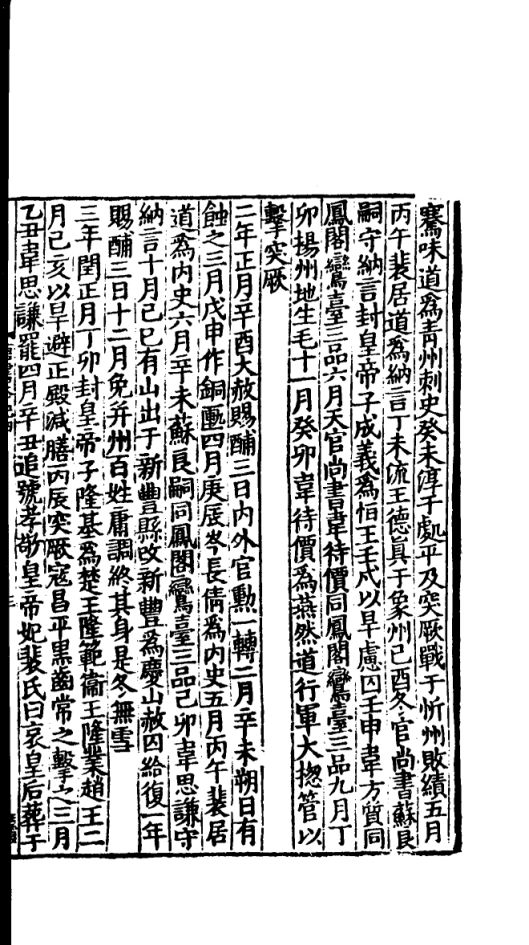 騫味道爲青州刺史癸未淳于處平及突厥戰于忻州敗績五月
丙午裴居道爲納言丁未流王德眞于象州己酉冬官尚書蘇良
嗣守納言封皇帝子成義爲恒王壬戌以旱慮囚壬申韋方質同
鳳閣鸞臺三品六月天官尚書韋待價同鳳閣鸞臺三品九月丁
卯揚州地生毛十一月癸卯韋待價爲燕然道行軍大揔管以
擊突厥
二年正月辛酉大赦賜酺三日內外官勲一轉二月辛未朔日有
蝕之三月戊申作銅匭四月庚辰岑長倩爲內史五月丙午裴居
道爲內史六月辛未蘇良嗣同鳳閣鸞臺三品己卯韋思謙守
納言十月己巳有山出于新豐縣改新豐爲慶山赦囚給復一年
賜酺三日十二月免并州百姓庸調終其身是冬無雪
三年閏正月丁卯封皇帝子隆基爲楚王隆範衞王隆業趙王二
月己亥以旱避正殿減膳丙辰突厥寇昌平黒齒常之擊之三月
乙丑韋思謙罷四月辛丑追號孝敬皇帝妃裴氏曰哀皇后葬于